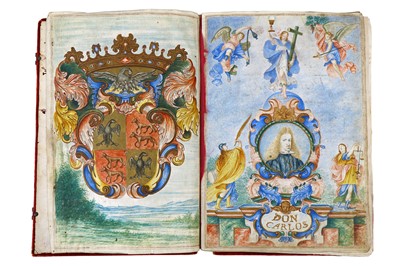 DON
CARLOS